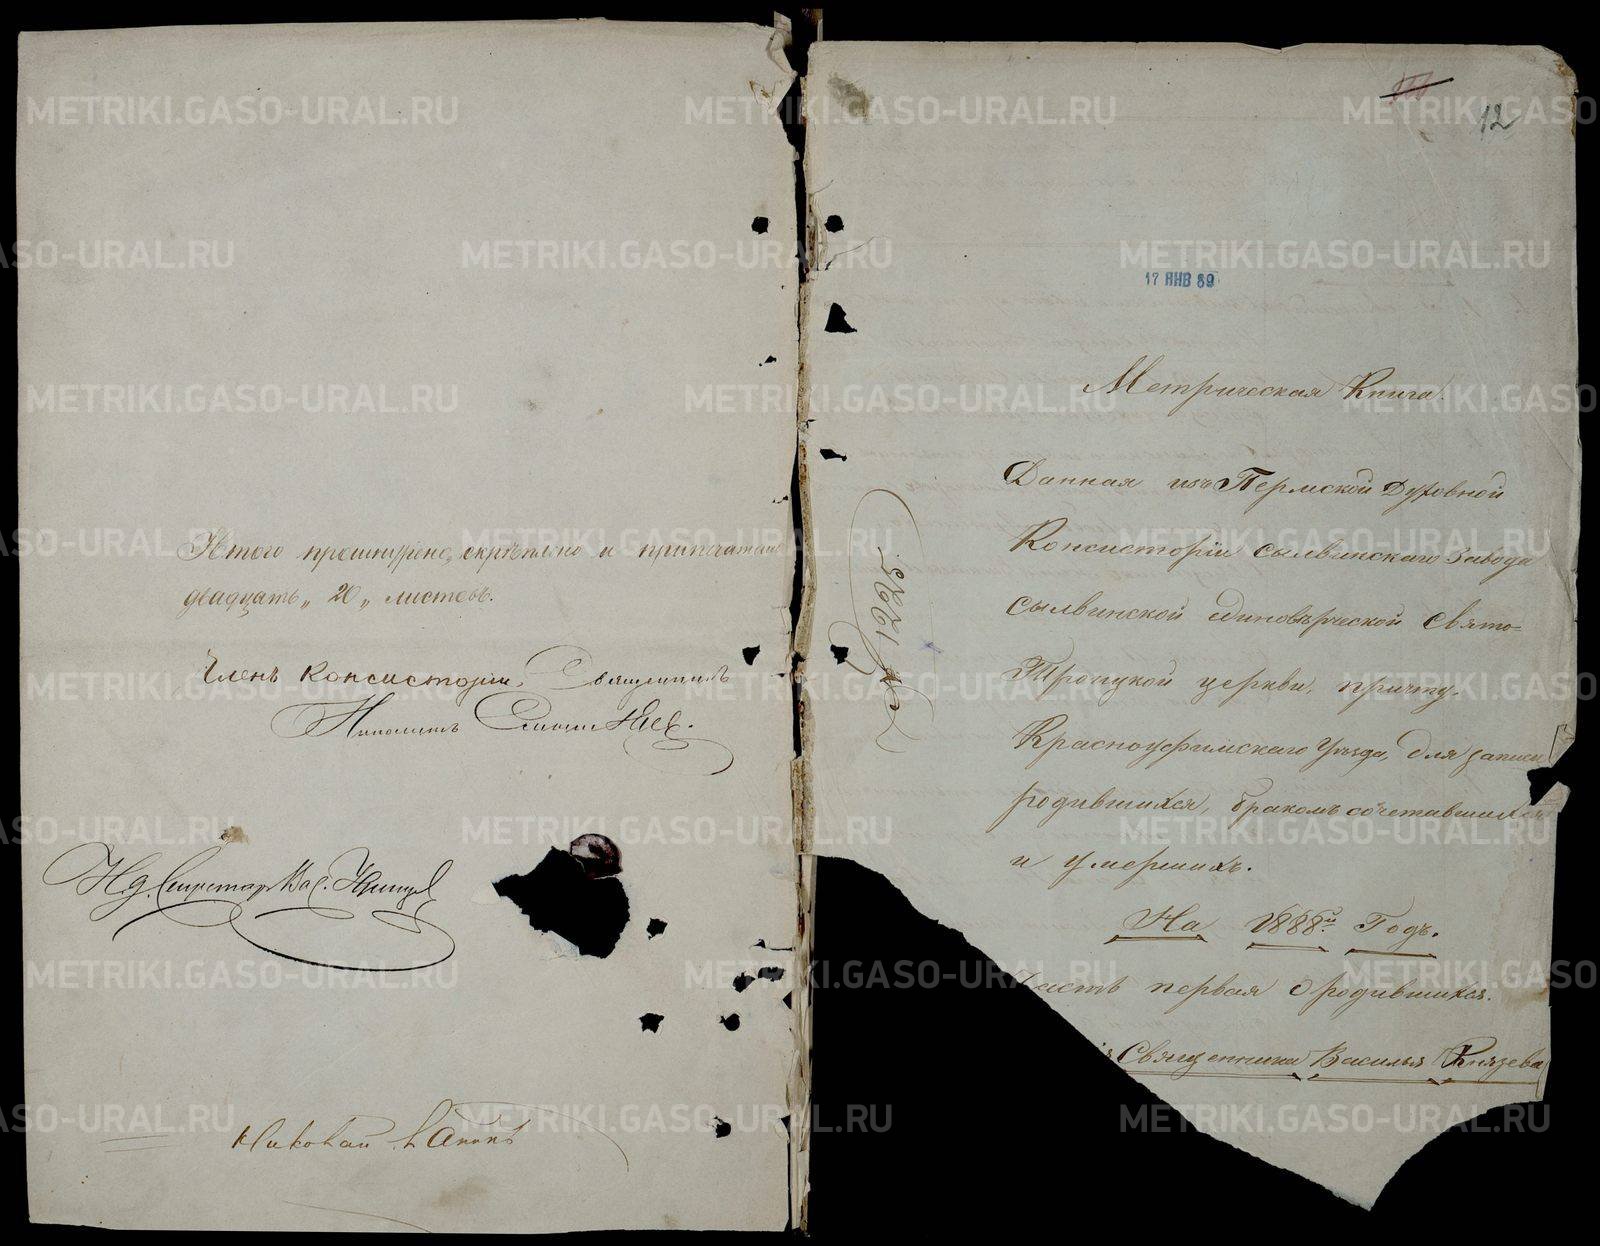 Итого прошнуровано, скрѣплено и припечатано
двадцать „ 20 „ листовъ.
Членъ Консисторіи, Священникъ
Ипполитъ
Секретарь Вас.
Николай
12
17 ЯНВ 89
Метрическая Книга.
Данная изъ Пермской Духовной
Консисторіи Сылвинскаго Завода
Сылвинской единовѣрческой Свято-
Троицкой церкви, причту.
Красноуфимскаго Уѣзда, для записи
родившихся, бракомъ сочетавшихся
и умершихъ.
На 1888й Годъ.
Часть первая о родившихся.
Священника Василья Князева
METRIKI.GASO-URAL.RU